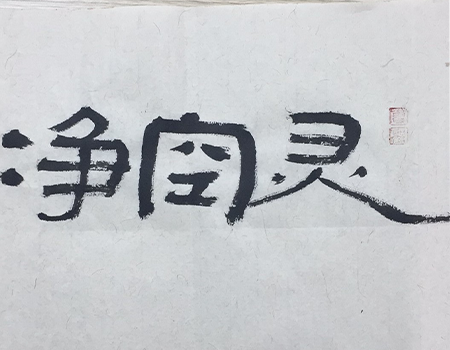 净空灵